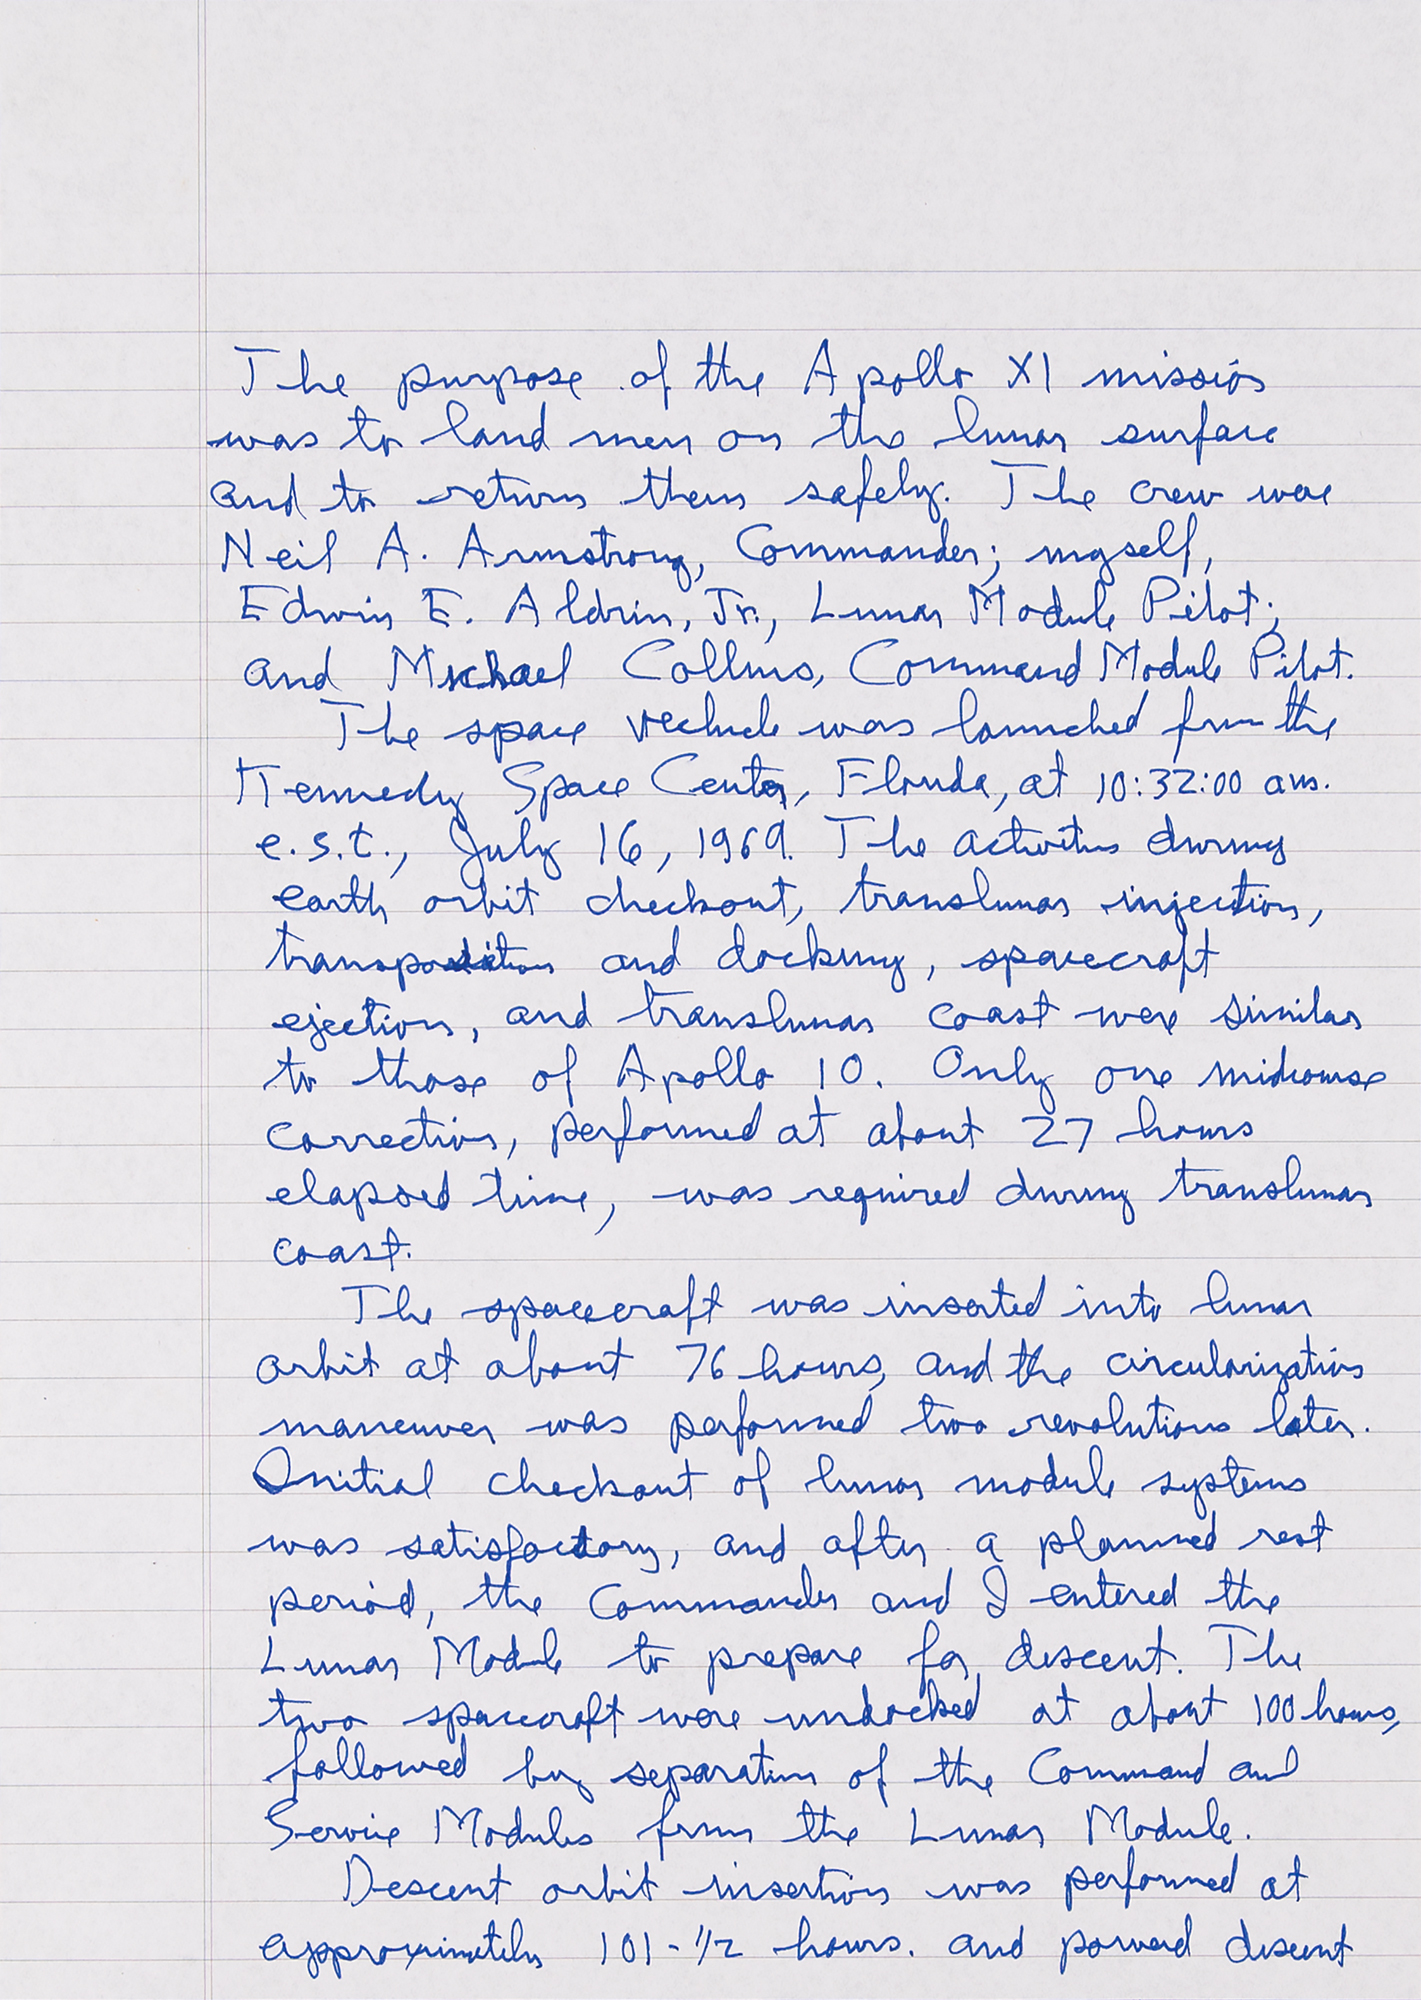 The purpose of the Apollo XI mission
was to land men on the lunar surface
and to return them safely. The crew were
Neil A. Armstrong, Commander; myself,
Edwin E. Aldrin, Jr., Lunar Module Pilot;
and Michael Collins, Command Module Pilot.
The space vechicle was launched from the
Kennedy Space Center, Florida, at 10:32:00 am.
e.s.t., July 16, 1969. The activities during
earth orbit checkout, translunar injection,
transposition and docking, spacecraft
ejection, and translunar coast were similar
to those of Apollo 10. Only one midcourse
correction, performed at about 27 hours
elapsed time, was required during translunar
coast.
The spacecraft was inserted into lunar
orbit at about 76 hours, and the circularization
maneuver was performed two revolutions later.
Initial checkout of lunar module systems
was satisfactory, and after a planned rest
period, the Commander and I entered the
Lunar Module to prepare for descent. The
two spacecraft were undocked at about 100 hours,
followed by separation of the Command and
Service Modules from the Lunar Module.
Descent orbit insertion was performed at
approximately 101-1/2 hours. and powered descent